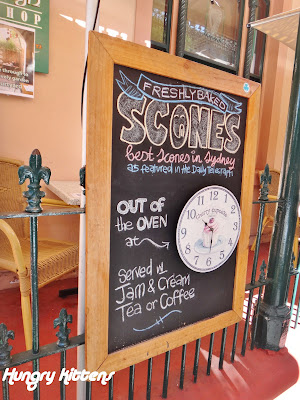 HOP
FRESHLY BAKED
SCONES
best scones in Sydney
as featured in the Daily Telegraph
OUT
OF
the OVEN
at
12
1
2
3
4
5
6
7
8
9
10
11
Served w
Jam & Cream
Tea or Coffee
Hungry Kittens